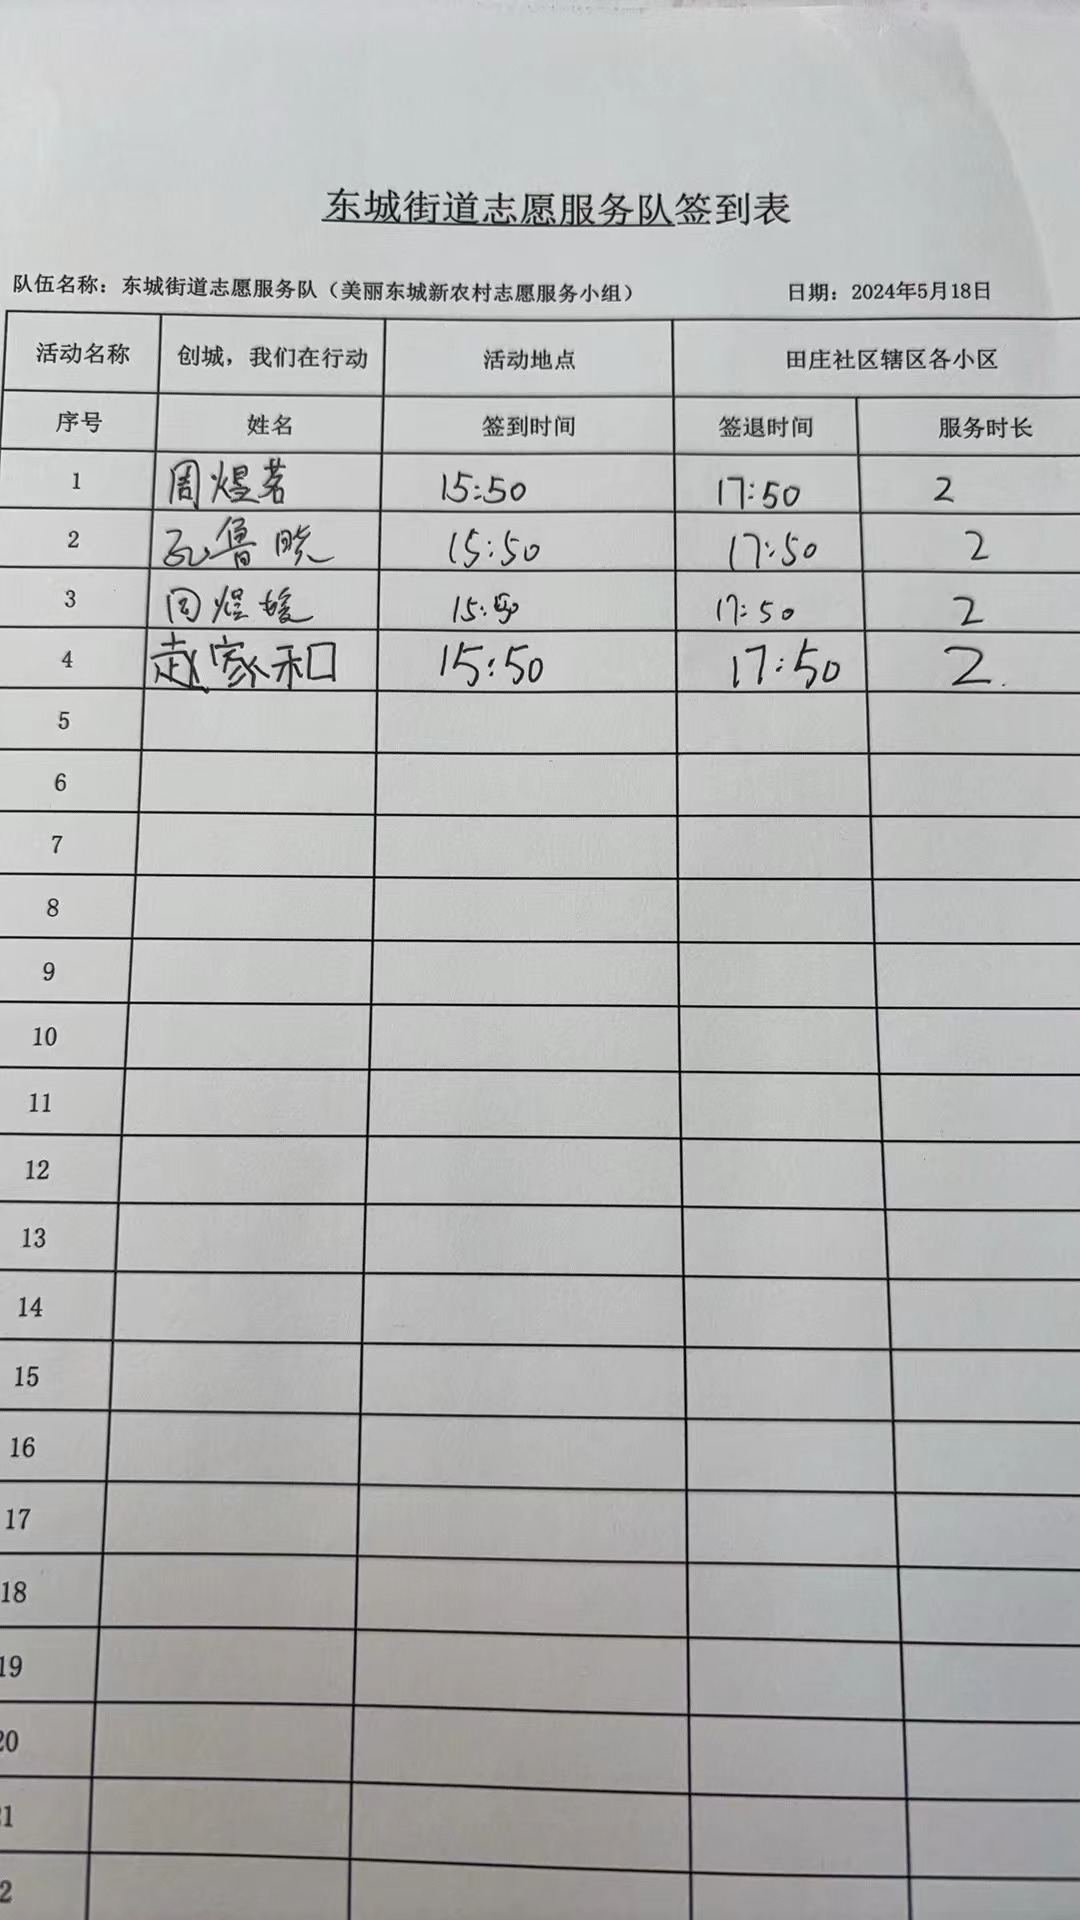 东城街道志愿服务队签到表
队伍名称：东城街道志愿服务队（美丽东城新农村志愿服务小组） 日期：2024年5月18日
活动名称 创城，我们在行动 活动地点 田庄社区辖区各小区
序号 姓名 签到时间 签退时间 服务时长
1 周煜茗 15:50 17:50 2
2 孔鲁晓 15:50 17:50 2
3 周煜媛 15:50 17:50 2
4 赵家和 15:50 17:50 2
5
6
7
8
9
10
11
12
13
14
15
16
17
18
19
20